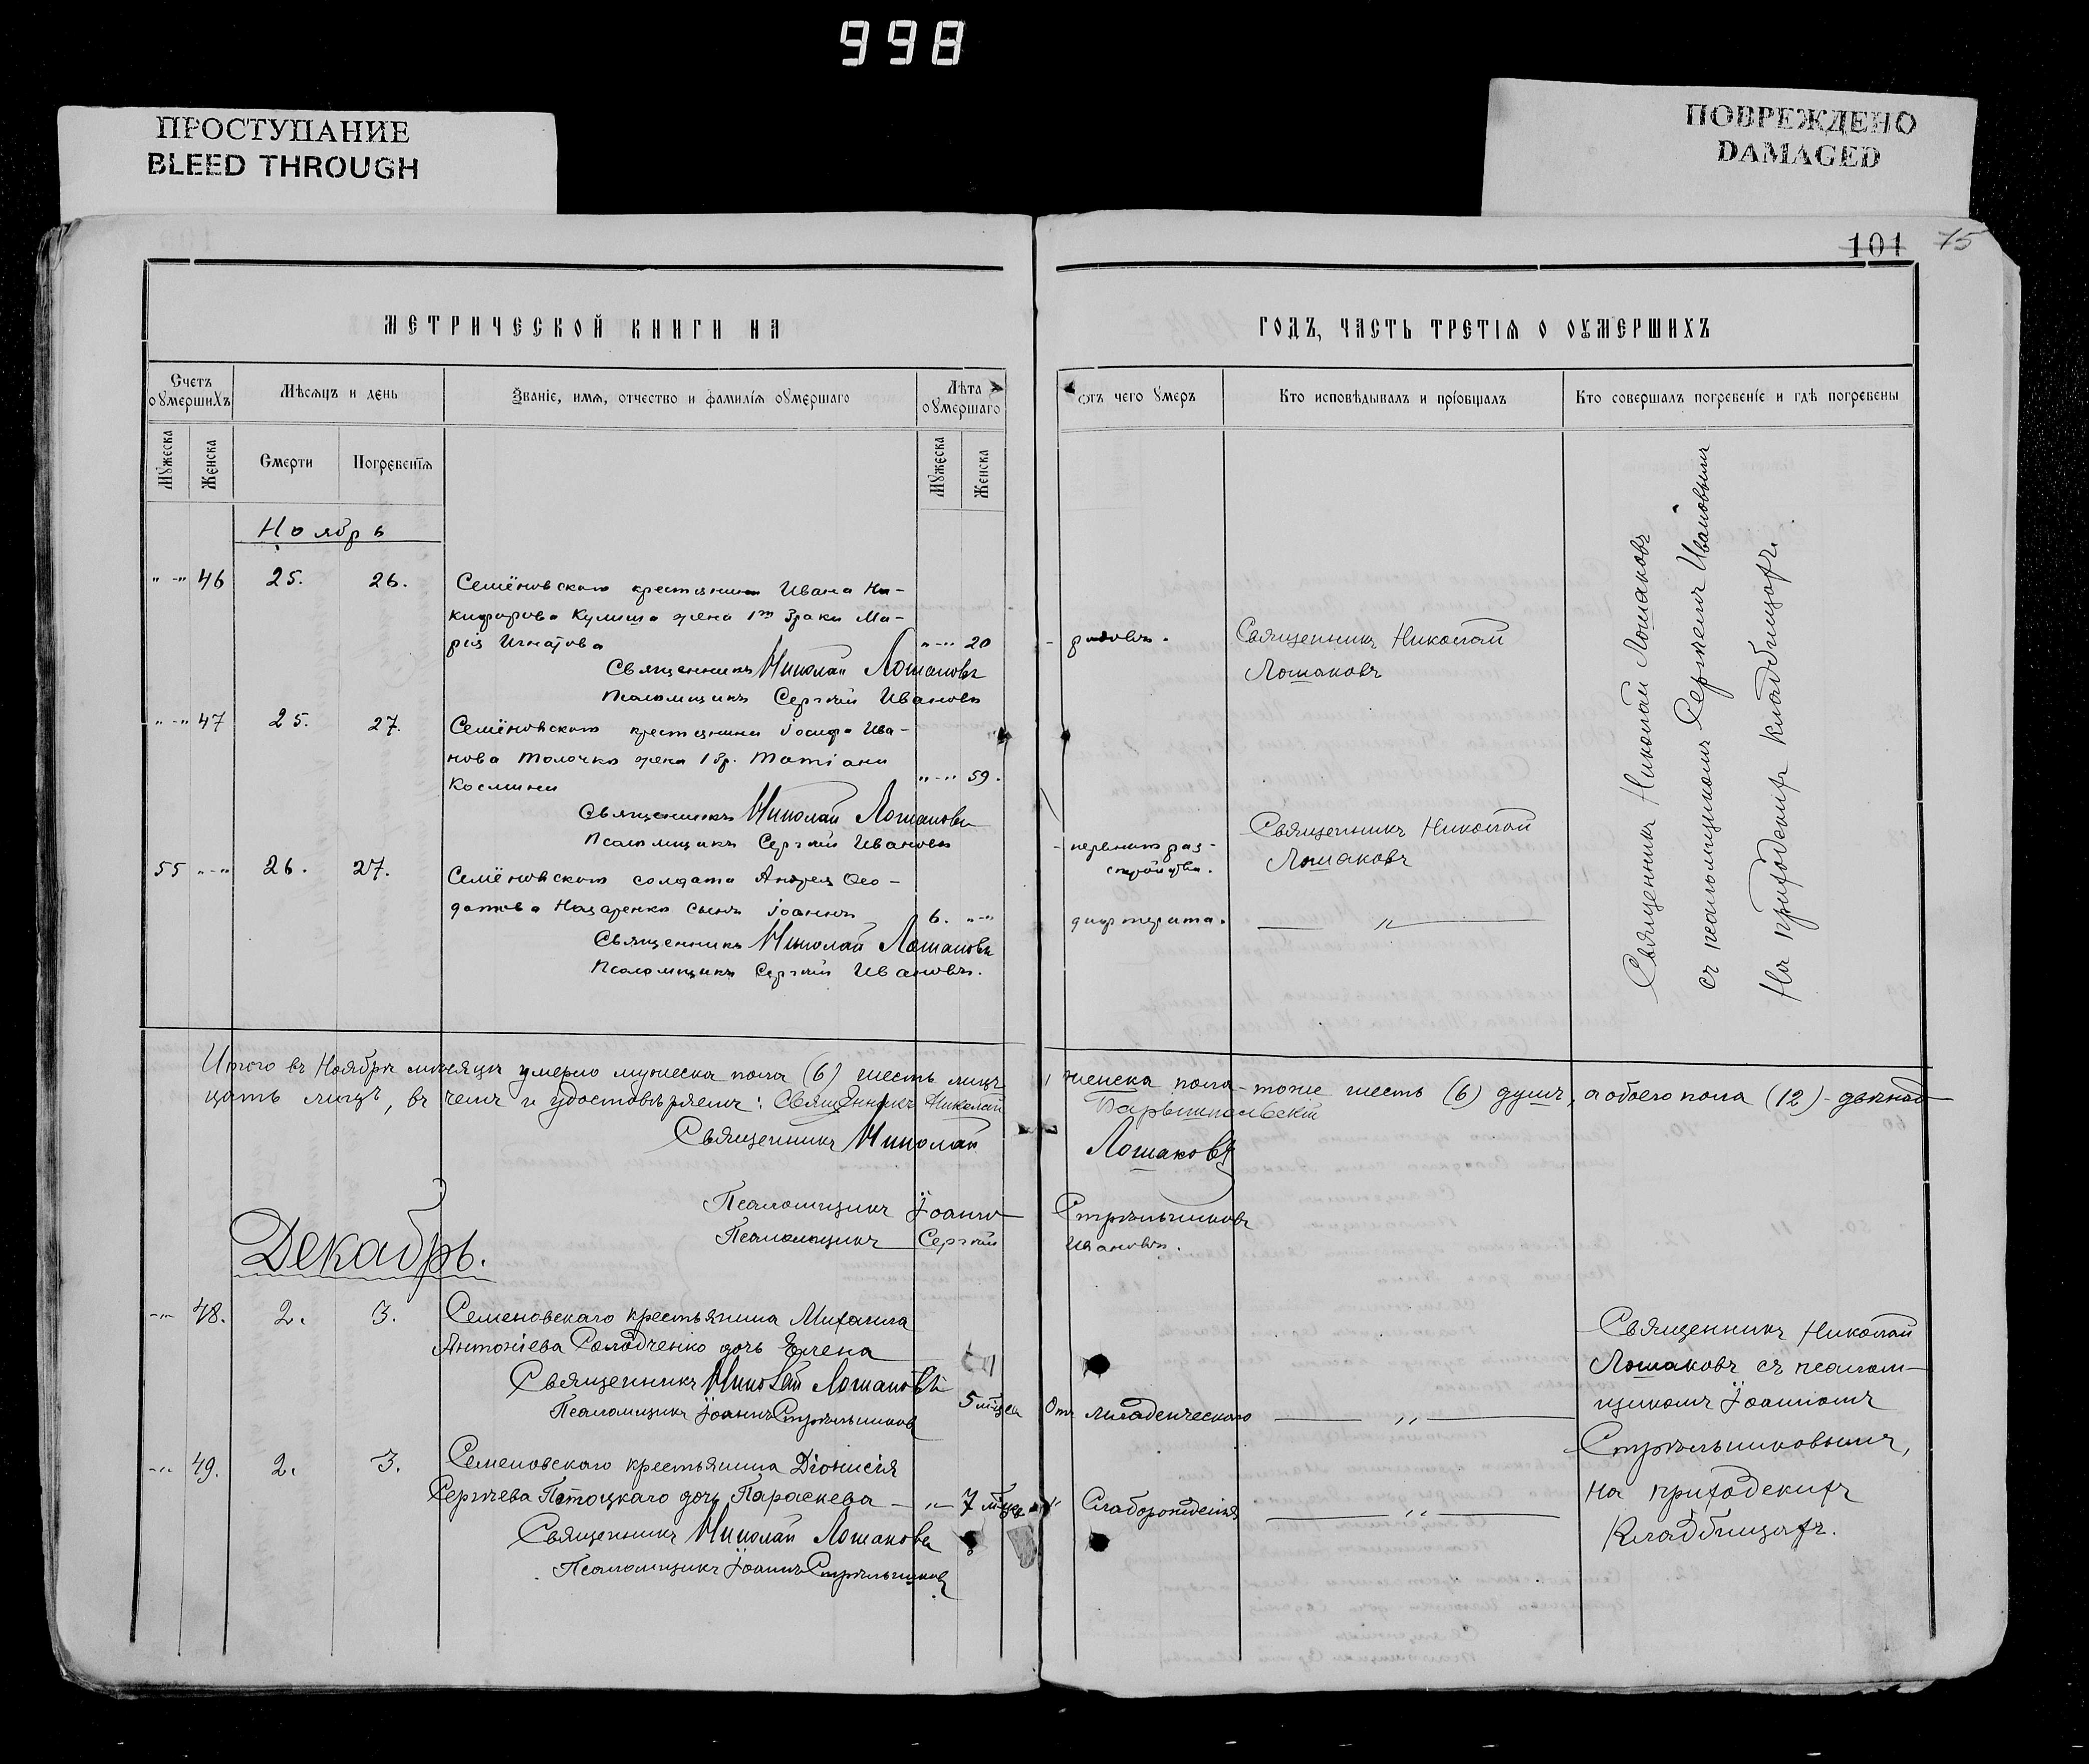 998
ПРОСТУПАНИЕ
BLEED THROUGH
ПОВРЕЖДЕНО
DAMAGED
101 75
МЕТРИЧЕСКОЙ КНИГИ НА
ГОДЪ, ЧАСТЬ ТРЕТІѦ О ОУМЕРШИХЪ
Счетъ оумершихъ
Мѣсяцъ и день
Званіе, имя, отчество и фамилія оумершаго
Лѣта оумершаго
Отъ чего умеръ
Кто исповѣдывалъ и пріобщалъ
Кто совершалъ погребеніе и гдѣ погребены
Мужеска
Женска
Смерти
Погребенія
Мужеска
Женска
Ноябрь
" - " 46 25. 26. Семёновскаго крестьянина Ивана Ни-
кифорова Кулиша жена 1го брака Ма-
рія Игнатова " - " 20 - родовъ. Священникъ Николай
Священникъ Николай Лошаковъ Лошаковъ
Псаломщикъ Сергѣй Ивановъ
" - " 47 25. 27. Семёновскаго крестьянина Іосифа Ива-
нова Толочко жена 1 бр. Татіана
Космина " - " 59.
Священникъ Николай Лошаковъ Священникъ Николай
Псаломщикъ Сергѣй Ивановъ - нервнаго раз- Лошаковъ
стройства.
55 " - " 26. 27. Семёновскаго солдата Андрея Ѳео-
дотова Назаренко сынъ Іоаннъ 6. " - " дифтерита. — " —
Священникъ Николай Лошаковъ
Псаломщикъ Сергѣй Ивановъ.
Священникъ Николай Лошаковъ
съ псаломщикомъ Сергѣемъ Ивановымъ
На приходскихъ кладбищахъ.
Итого въ Ноябрѣ мѣсяцѣ умерло мужеска пола (6) шесть лицъ, женска пола - тоже шесть (6) душъ, а обоего пола (12) - двѣнад-
цать лицъ, въ чемъ и удостовѣряемъ: Священникъ Николай Барышпольскій
Священникъ Николай Лошаковъ
Псаломщикъ Іоаннъ Стрѣльниковъ
Псаломщикъ Сергѣй Ивановъ.
Декабрь.
- " - 48. 2. 3. Семеновскаго крестьянина Михаила
Антоніева Солодченко дочь Елена
Священникъ Николай Лошаковъ
Псаломщикъ Іоаннъ Стрѣльниковъ 5 мѣсяц Отъ младенческаго — " —
- " - 49. 2. 3. Семеновскаго крестьянина Діонисія
Сергѣева Потоцкаго дочь Параскева - " - 7 мѣсяц " Слаборожденія — " —
Священникъ Николай Лошаковъ
Псаломщикъ Іоаннъ Стрѣльниковъ
Священникъ Николай
Лошаковъ съ псалом-
щикомъ Іоанномъ
Стрѣльниковымъ,
на приходскихъ
Кладбищахъ.